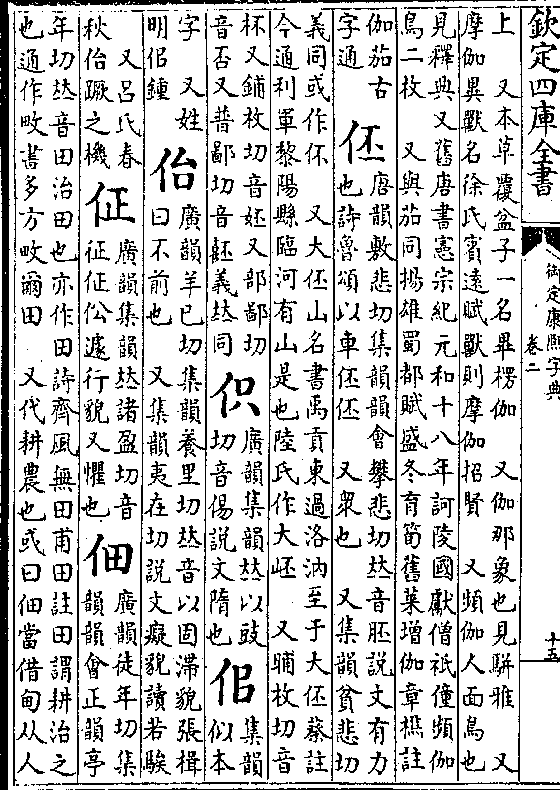 欽定四庫全書
御定康熙字典
卷二
十五
上　又本草覆盆子一名畢楞伽　又伽那象也見駢雅　又
摩伽異獸名徐氏賓遠賦獸則摩伽招賢　又頻伽人面鳥也
見釋典又舊唐書憲宗紀元和十八年訶陵國獻僧祇僮頻伽
鳥二枚　又與茄同揚雄蜀都賦盛冬育筍舊菜增伽章樵註
伽茄古
字通
伾
唐韻敷悲切集韻韻會攀悲切𠀤音胚說文有力
也詩魯頌以車伾伾　又衆也　又集韻貧悲切
義同或作伓　又大伾山名書禹貢東過洛汭至于大伾蔡註
今通利軍黎陽縣臨河有山是也陸氏作大岯　又鋪枚切音
杯又鋪枚切音妚又部鄙切
音否又普鄙切音㔻義𠀤同
伿
廣韻集韻𠀤以豉
切音傷說文隋也
佀
集韻
似本
字　又姓
明佀鍾
佁
廣韻羊已切集韻養里切𠀤音以固滯貌張楫
曰不前也　又集韻夷在切說文癡貌讀若騃
又呂氏春
秋佁蹶之機
佂
廣韻集韻𠀤諸盈切音
征佂伀遽行貌又懼也
佃
廣韻徒年切集
韻韻會正韻亭
年切𠀤音田治田也亦作田詩齊風無田甫田註田謂耕治之
也通作畋書多方畋爾田　又代耕農也或曰佃當借甸从人